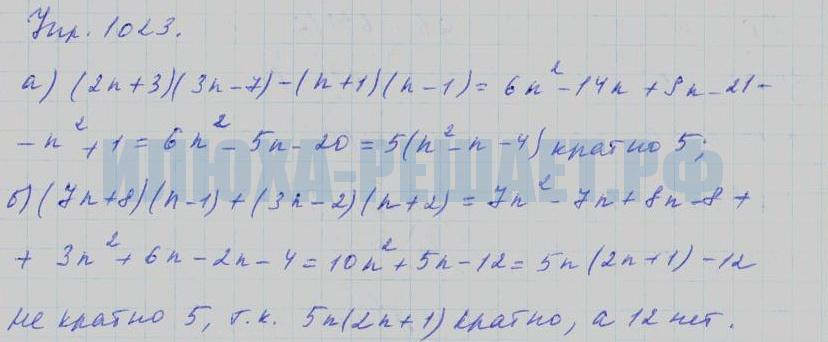 Упр. 1023.
а) (2n+3)(3n-7)-(n+1)(n-1) = 6n²-14n+9n-21-
-n²+1 = 6n²-5n-20 = 5(n²-n-4) кратно 5;
ИЛЮХА-РЕШАЕТ.РФ
б) (7n+8)(n-1)+(3n-2)(n+2) = 7n²-7n+8n-8+
+ 3n²+6n-2n-4 = 10n²+5n-12 = 5n(2n+1)-12
не кратно 5, т.к. 5n(2n+1) кратно, а 12 нет.